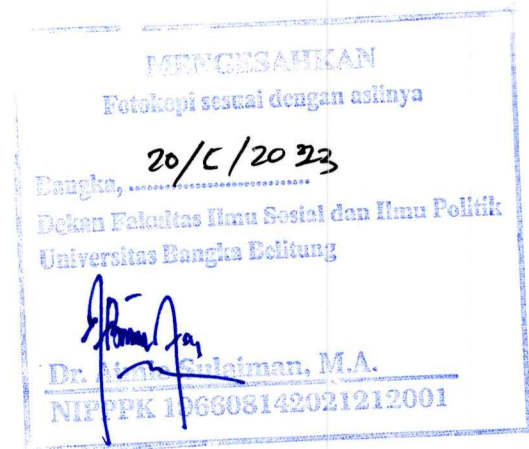 MENGESAHKAN
Fotokopi sesuai dengan aslinya
20/5/2023
Bangka, ..............................
Dekan Fakultas Ilmu Sosial dan Ilmu Politik
Universitas Bangka Belitung
Dr. Sulaiman, M.A.
NIPPPK 196608142021212001